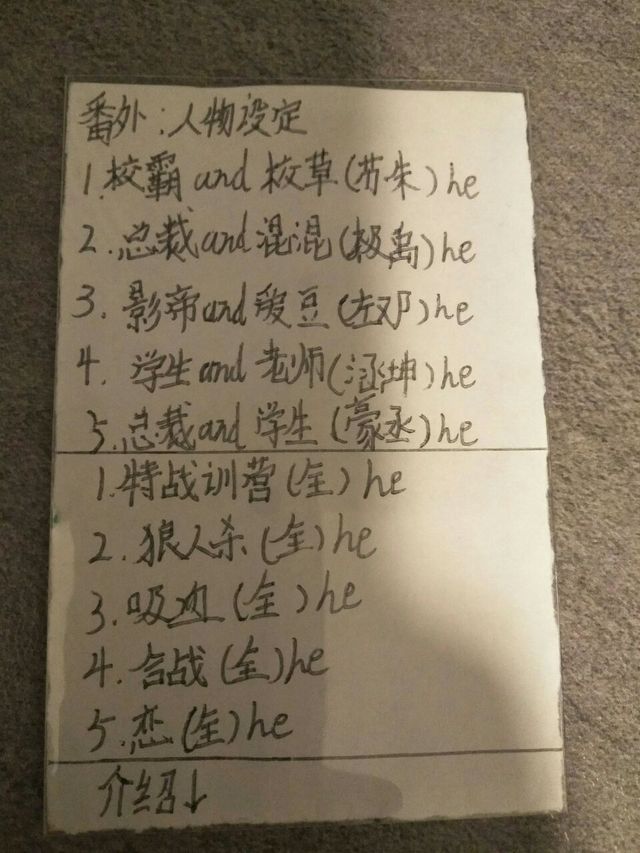 番外:人物设定
1.校霸and校草(苏朱)he
2.总裁and混混(极禹)he
3.影帝and爱豆(左邓)he
4.学生and老师(涵坤)he
5.总裁and学生(豪丞)he
1.特战训营(全)he
2.狼人杀(全)he
3.吸血(全)he
4.合战(全)he
5.恋(全)he
介绍↓